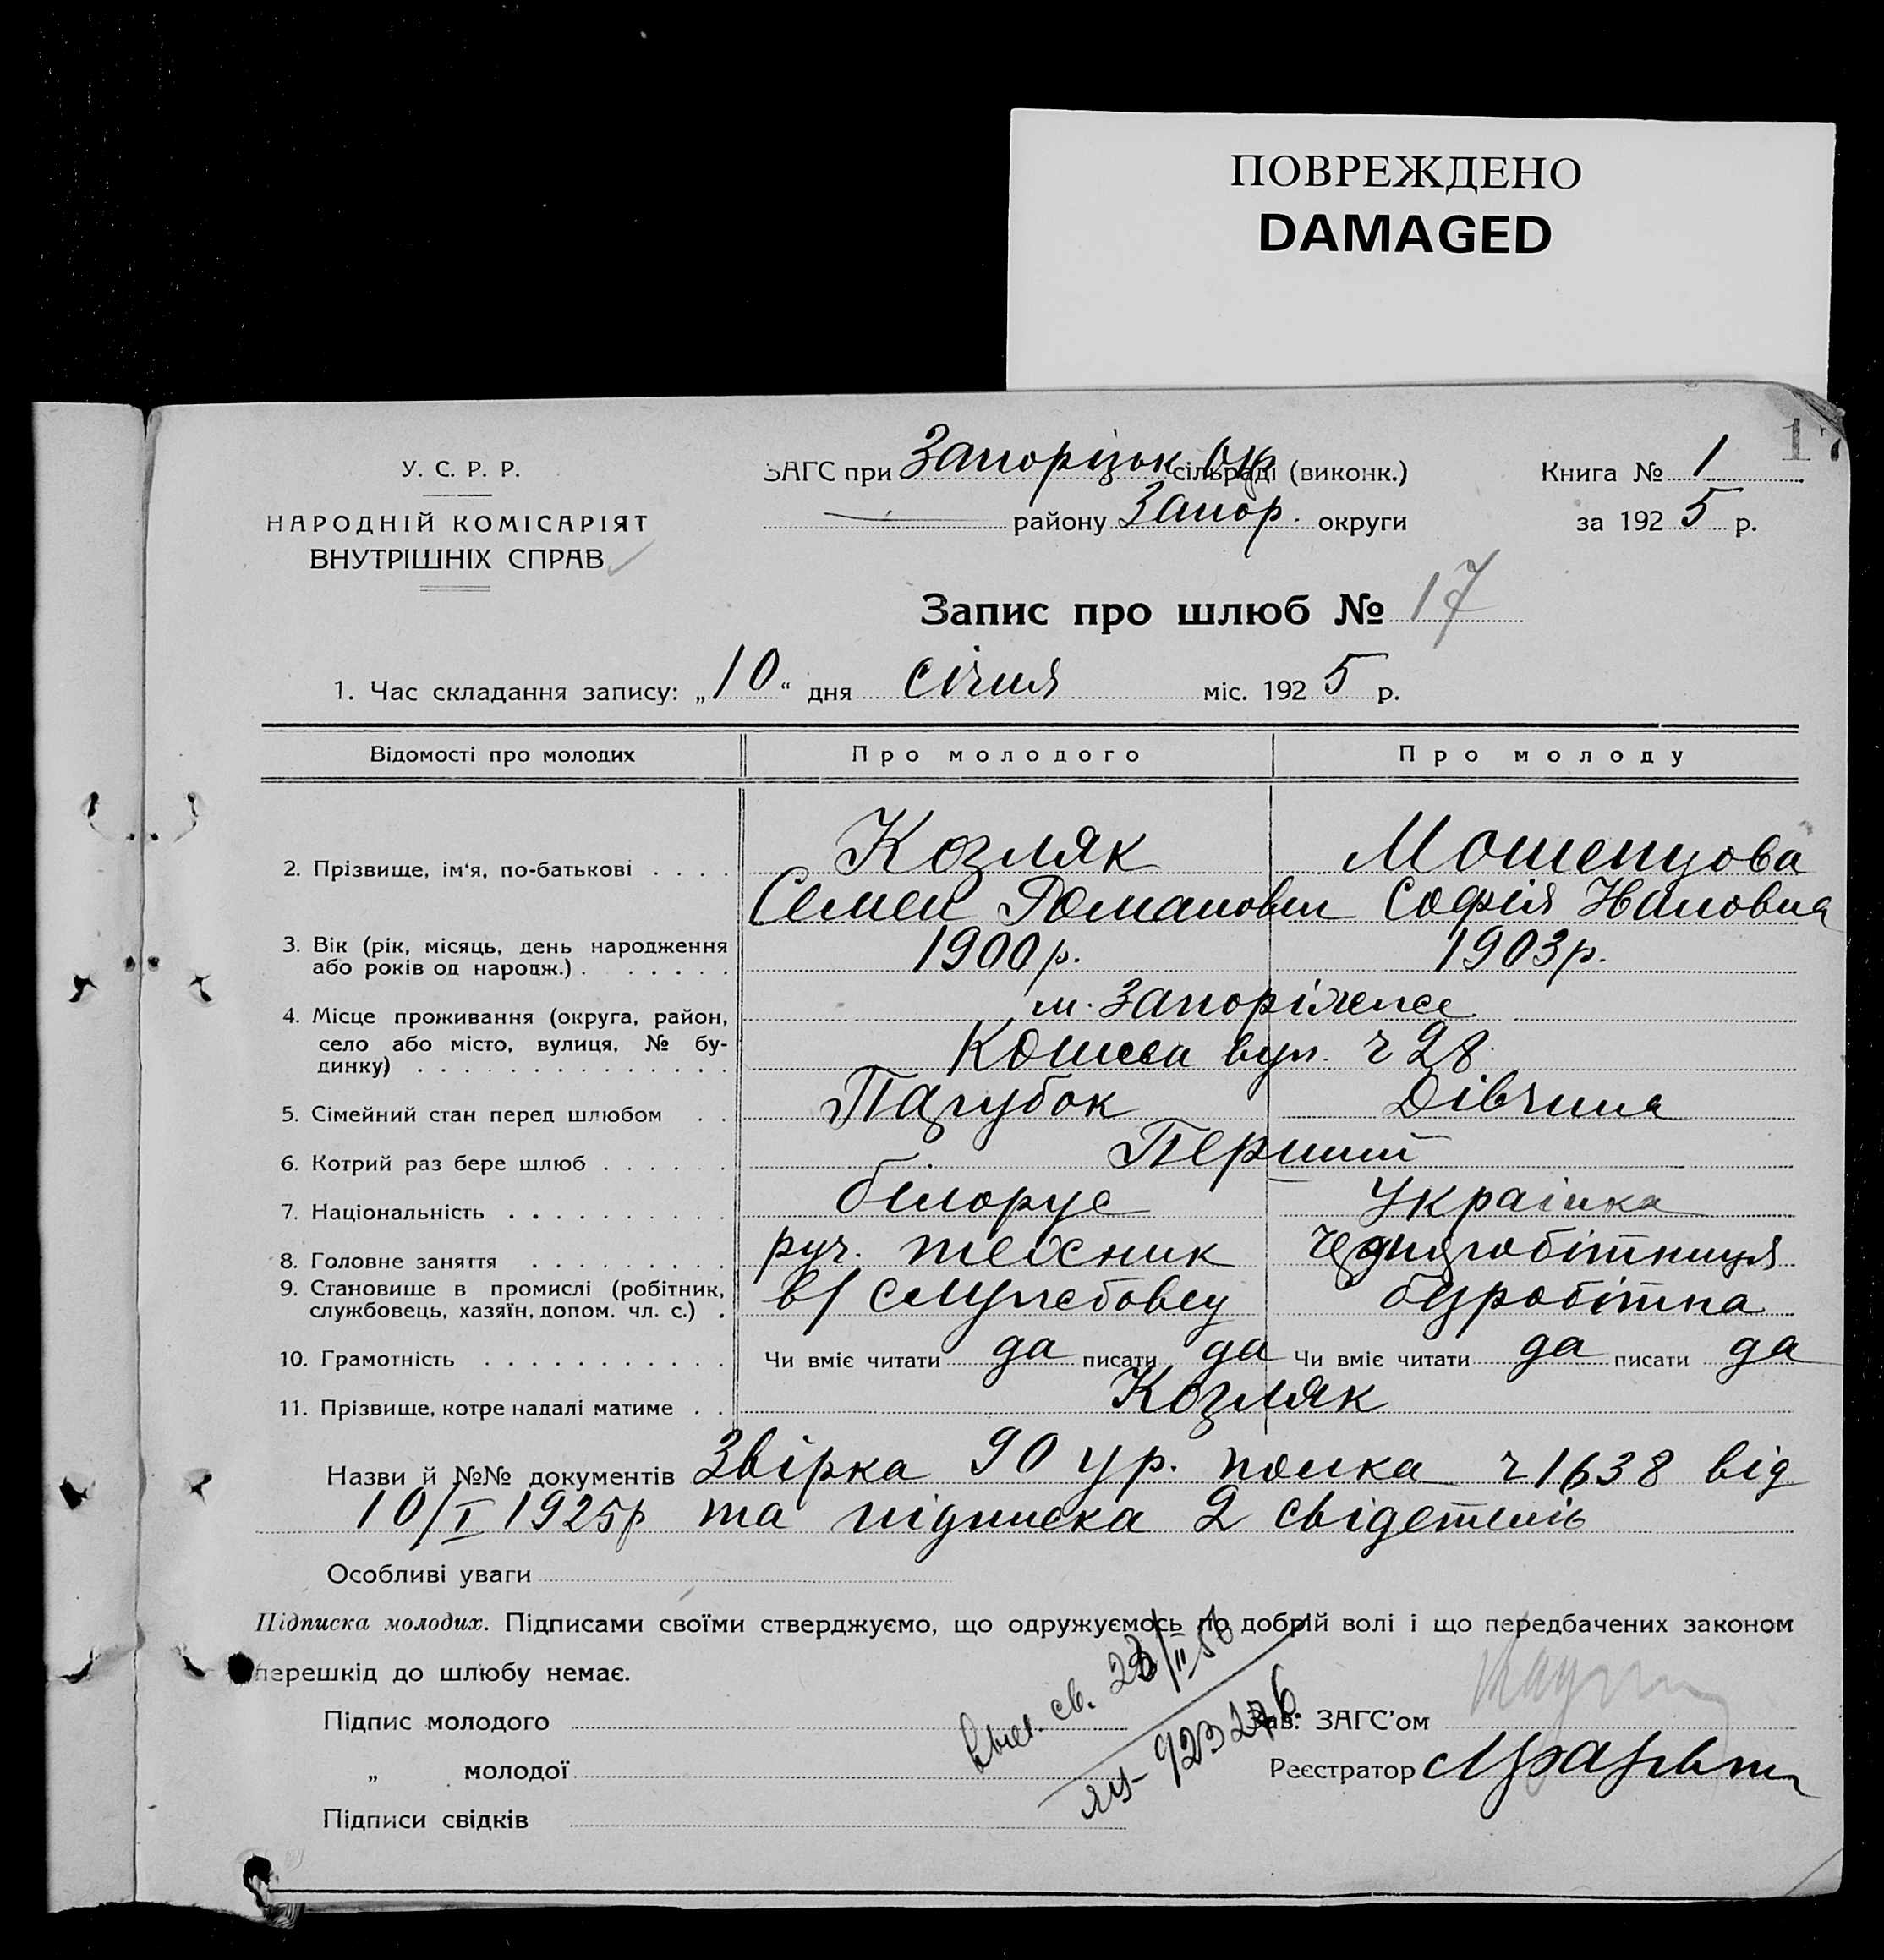 ПОВРЕЖДЕНО
DAMAGED
17
У. С. Р. Р.
НАРОДНІЙ КОМІСАРІЯТ
ВНУТРІШНІХ СПРАВ
ЗАГС при Запорізьк Окр сільраді (виконк.)
району Запор. округи
Книга № 1
за 1925 р.
Запис про шлюб № 17
1. Час складання запису: „10“ дня січня міс. 1925 р.
Відомості про молодих
Про молодого
Про молоду
2. Прізвище, ім'я, по-батькові . . . .
Козляк
Семен Романович
Мошенцова
Софія
3. Вік (рік, місяць, день народження
або років од народж.) . . . . . .
1900 р.
1903 р.
4. Місце проживання (округа, район,
село або місто, вулиця, № бу-
динку) . . . . . . . . . . . . . .
м. Запоріжжє
вул. ч 28
5. Сімейний стан перед шлюбом . .
Парубок
Дівчина
6. Котрий раз бере шлюб . . . . . .
Перший
7. Національність . . . . . . . . . .
білорус
Українка
8. Головне заняття . . . . . . . . .
руч. техник
9. Становище в промислі (робітник,
службовець, хазяїн, допом. чл. с.) .
в/службовец
безробітна
10. Грамотність . . . . . . . . . . .
Чи вміє читати да писати да
Чи вміє читати да писати да
11. Прізвище, котре надалі матиме . .
Козляк
Назви й №№ документів Звірка 90 ур. полка ч 1638 від
10/I 1925р та підписка 2 свідетелів
Особливі уваги
Підписка молодих. Підписами своїми стверджуємо, що одружуємось по добрій волі і що передбачених законом
перешкід до шлюбу немає.
Підпис молодого
„ молодої
Підписи свідків
Зав. ЗАГС'ом
Реєстратор
св. 23/II 56
923276